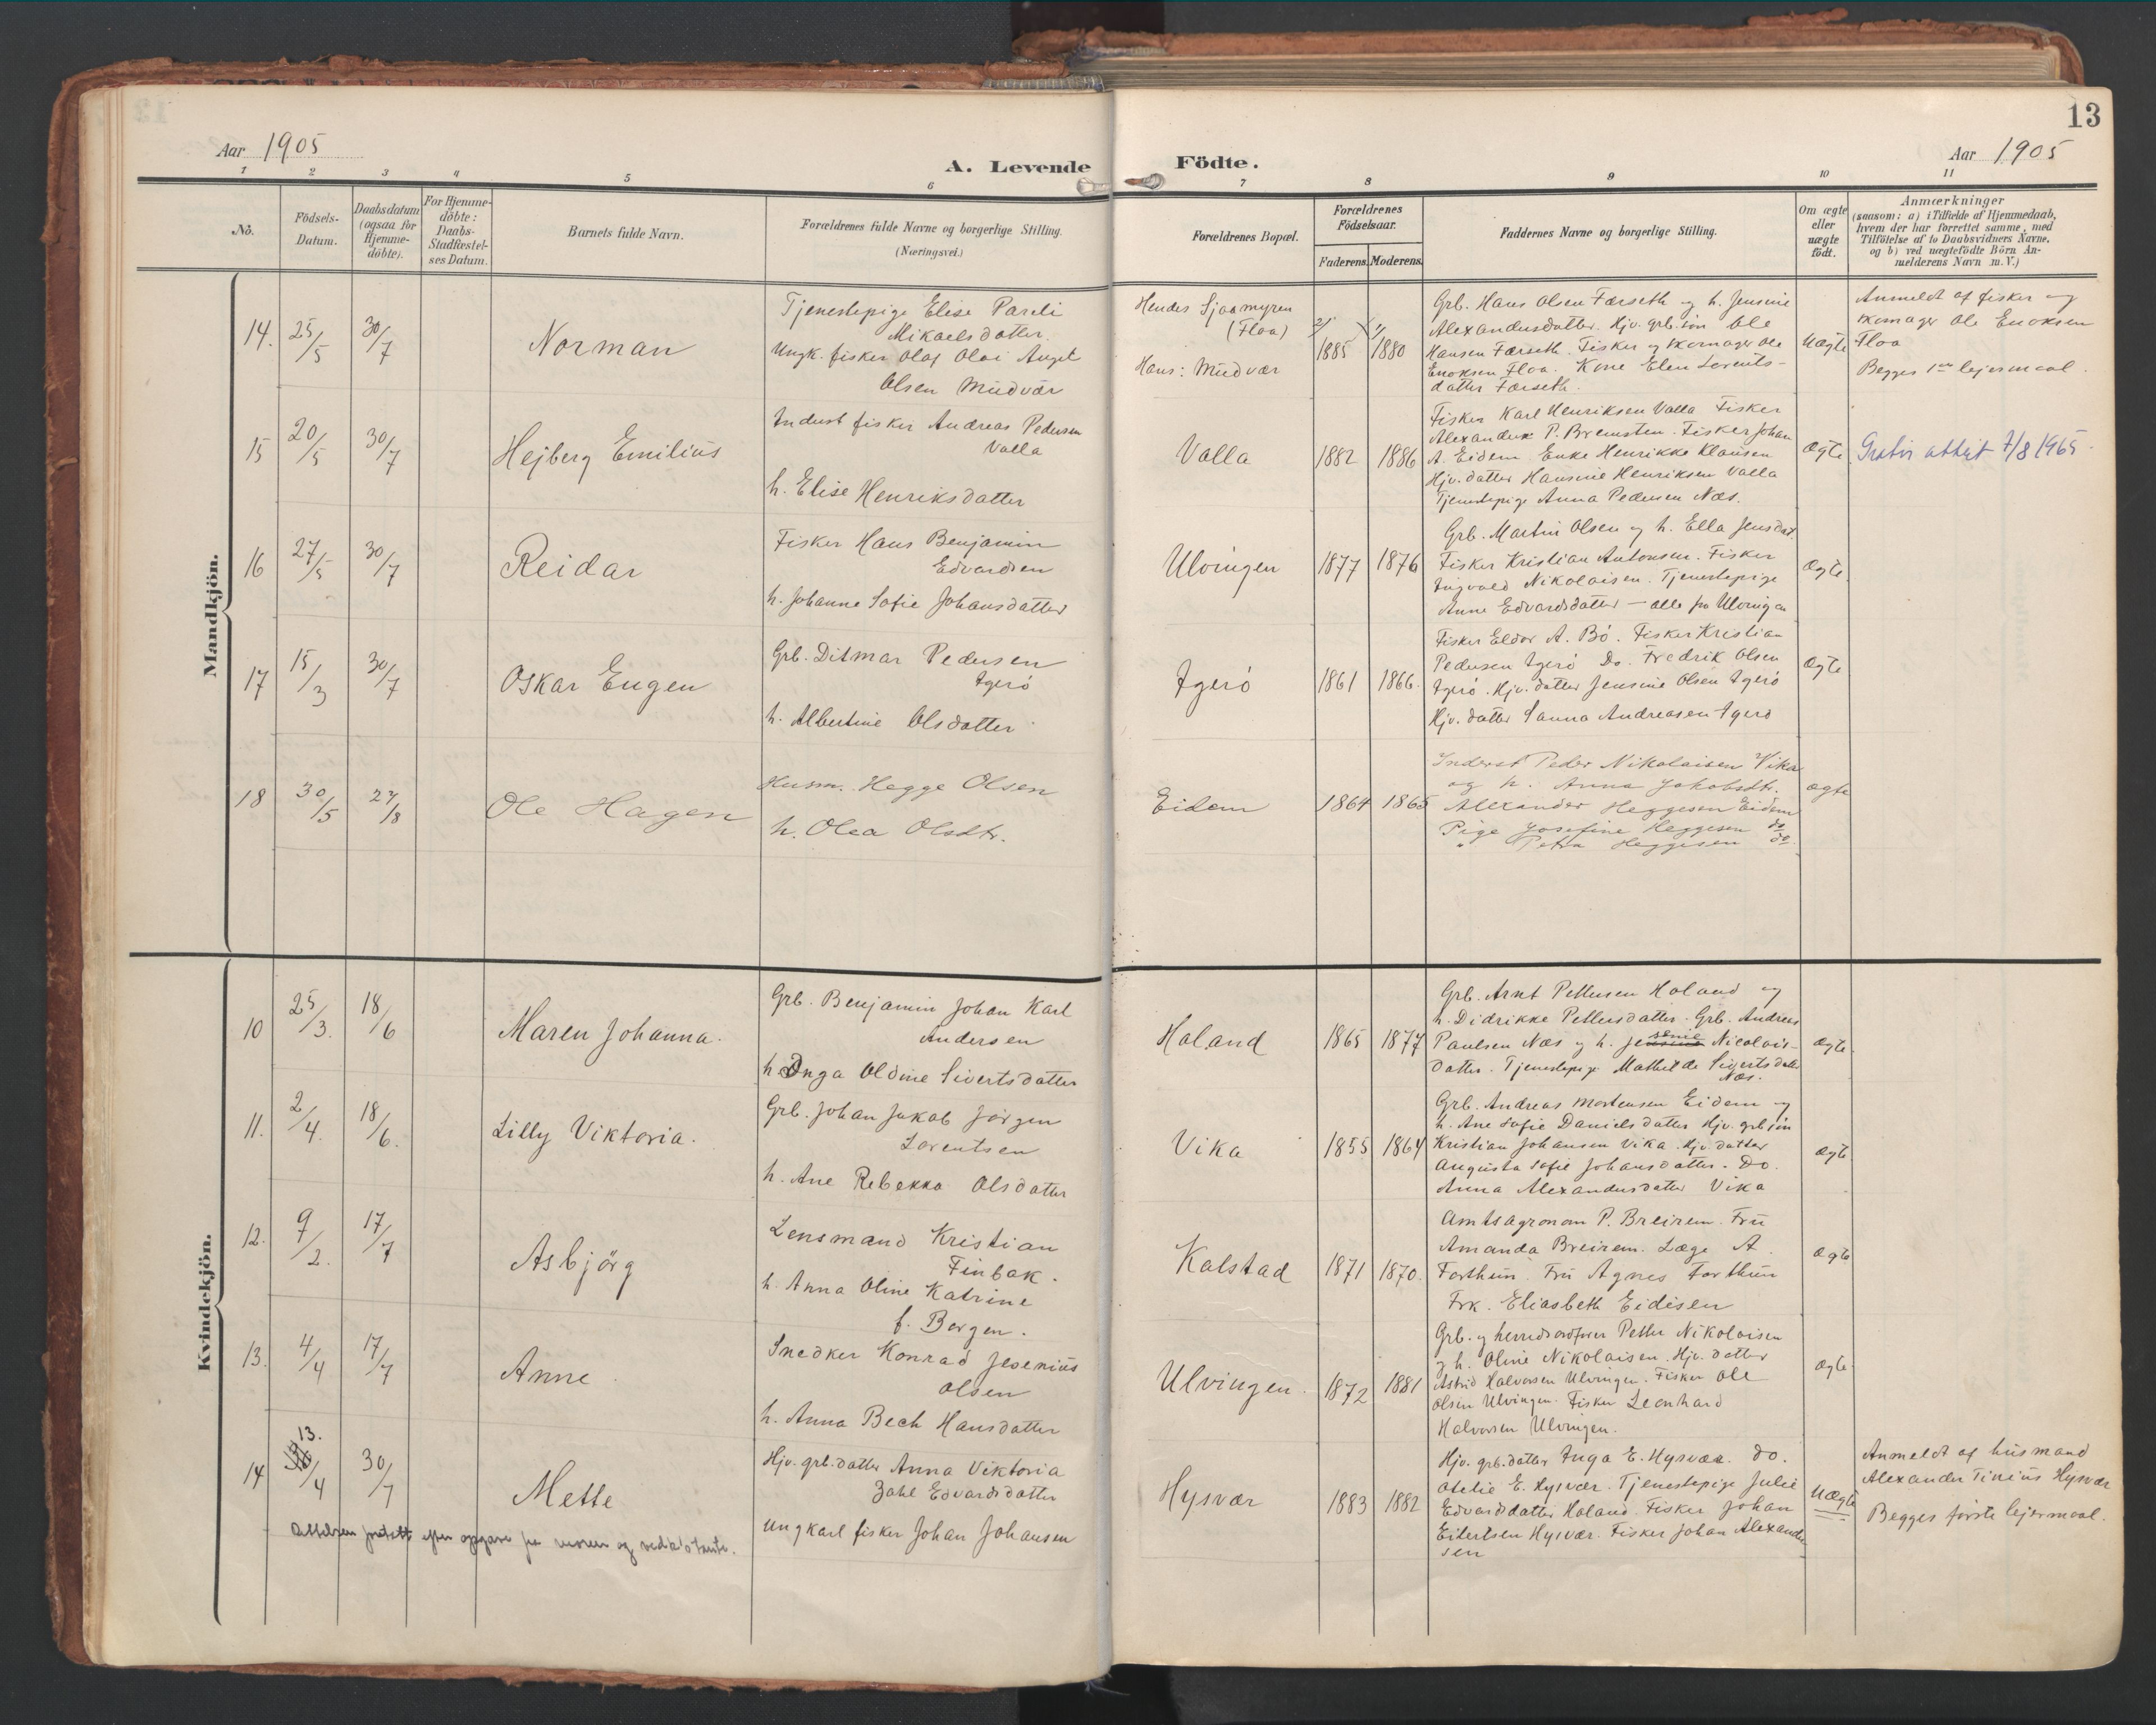 13
Aar 1905
A. Levende Födte.
Aar 1905
1 2 3 4 5 6 7 8 9 10 11
No.
Födsels-
Datum.
Daabsdatum
(ogsaa for
Hjemme-
döbte).
For Hjemme-
döbte:
Daabs-
Stadfæstel-
ses Datum.
Barnets fulde Navn.
Forældrenes fulde Navne og borgerlige Stilling.
(Næringsvei.)
Forældrenes Bopæl.
Forældrenes
Födselsaar.
Faderens. Moderens.
Faddernes Navne og borgerlige Stilling.
Om ægte
eller
uægte
födt.
Anmærkninger
(saasom: a) i Tilfælde af Hjemmedaab,
hvem der har forrettet samme, med
Tilföielse af to Daabsvidners Navne,
og b) ved uægtefödte Börn An-
melderens Navn m.V.)
Mandkjön.
14. 25/5 30/7
Norman
Tjenestepige Elise Pareli
Mikaelsdatter.
Ungk. fisker Olaf Olai Angel
Olsen Müdvær
Hendes Sjaamyren
(Floa)
Hans: Müdvær
1885 1880
Grb. Hans Olsen Færseth og h. Jensine
Alexandersdatter. Hjv. grb. søn Ole
Hansen Færseth. Fisker og skomager Ole
Enoksen Floa. Kone Elen Lorents-
datter Færseth.
Uægte
Anmeldt af fisker og
skomager Ole Enoksen
Floa
Begges 1ste lejermaal.
15 20/5 30/7
Hejberg Emilius
Inderst fisker Andreas Pedersen
Valla
h. Elise Henriksdatter
Valla
1882 1886
Fisker Karl Henriksen Valla Fisker
Alexander P. Bremsten. Fisker Johan
A. Eidem. Enke Henrikke Klausen
Hjv. datter Hansine Henriksen Valla
Tjenestepige Anna Pedersen Næs.
Ægte
Gratis attest 7/8 1965.
16 27/5 30/7
Reidar
Fisker Hans Benjamin
Edvardsen
h. Johanne Sofie Johansdatter
Ulvingen
1877 1876
Grb. Martin Olsen og h. Ella Jensdat.
Fisker Kristian Antonsen. Fisker
Ingvald Nikolaisen. Tjenestepige
Anne Edvardsdatter – alle fra Ulvingen
Ægte.
17 15/3 30/7
Oskar Eugen
Grb. Ditmar Pedersen
Igerö
h. Albertine Olsdatter
Igerö
1861 1866.
Fisker Eldor A. Bö. Fisker Kristian
Pedersen Igerö Do. Fredrik Olsen
Igerö. Hjv. datter Jensine Olsen Igerö
Hjv. datter Sanna Andreasen Igerö
Ægte
18 30/5 27/8
Ole Hagen
Husm. Hegge Olsen
h. Olea Olsdtr.
Eidem
1864 1865
Inderst Peder Nikolaisen Vika
og h. Anna Jakobsdtr.
Alexander Heggesen Eidem
Pige Josefine Heggesen do
" Petra Heggesen do.
ægte
Kvindekjön.
10 25/3. 18/6
Maren Johanna.
Grb. Benjamin Johan Karl
Andersen
h. Inga Oldine Sivertsdatter
Haland
1865 1877
Grb. Arnt Pettersen Haland og
h. Didrikke Pettersdatter. Grb. Andreas
Paulsen Næs og h. Jensenie Nicolais-
datter. Tjenestepige Mathilde Sivertsdatter
Næs.
ægte.
11. 2/4. 18/6.
Lilly Viktoria.
Grb. Johan Jakob Jørgen
Lorentsen
h. Ane Rebekka Olsdatter
Vika
1855 1864
Grb. Andreas Mortensen Eidem og
h. Ane Sofie Danielsdatter Hjv. grb søn
Kristian Johansen Vika. Hjv. datter
Augusta Sofie Johansdatter. Do.
Anna Alexandersdatter Vika
ægte.
12. 9/2. 17/7
Asbjörg
Lensmand Kristian
Finbak.
h. Anna Oline Katrine
f. Borgen.
Kalstad
1871 1870.
Amtsagronom P. Breirem. Fru
Amanda Breirem. Læge A.
Forthun. Fru Agnes Forthun
Frk. Eliasbeth Eidisen
ægte
13. 4/4 17/7
Anne
Snedker Konrad Jesenius
Olsen
h. Anna Bech Hansdatter
Ulvingen.
1872 1881
Grb. og herredsordfører Petter Nikolaisen
og h. Oline Nikolaisen. Hjv. datter
Astrid Halvorsen Ulvingen. Fisker Ole
Olsen Ulvingen. Fisker Leonhard
Halvorsen Ulvingen.
ægte.
14 13./4 30/7
Mette
Hjv. grb. datter Anna Viktoria
Zahl Edvardsdatter
Ungkarl fisker Johan Johansen
Hysvær
1883 1882
Hjv. grb. datter Inga E. Hysvær. Do.
Otelie E. Hysvær. Tjenestepige Julie
Edvardsdatter Haland. Fisker Johan
Eilertsen Hysvær. Fisker Johan Alexander
sen
Uægte
Anmeldt af husmand
Alexander Tinius Hysvær
Begges første lejermaal.
efter opgave fra moren og